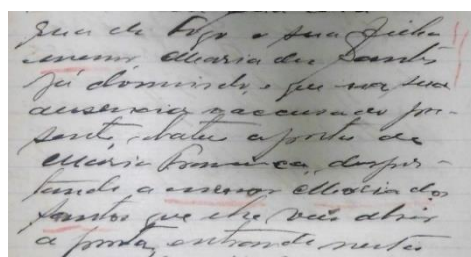 que de logo a sua filha
menor, Maria dos Santos
já dormindo, e que na sua
ausencia o accusado pre-
sente, bateu a porta de
Maria Romana, desper-
tando a menor Maria dos
Santos que lhe veiu abrir
a porta, entrando nesta